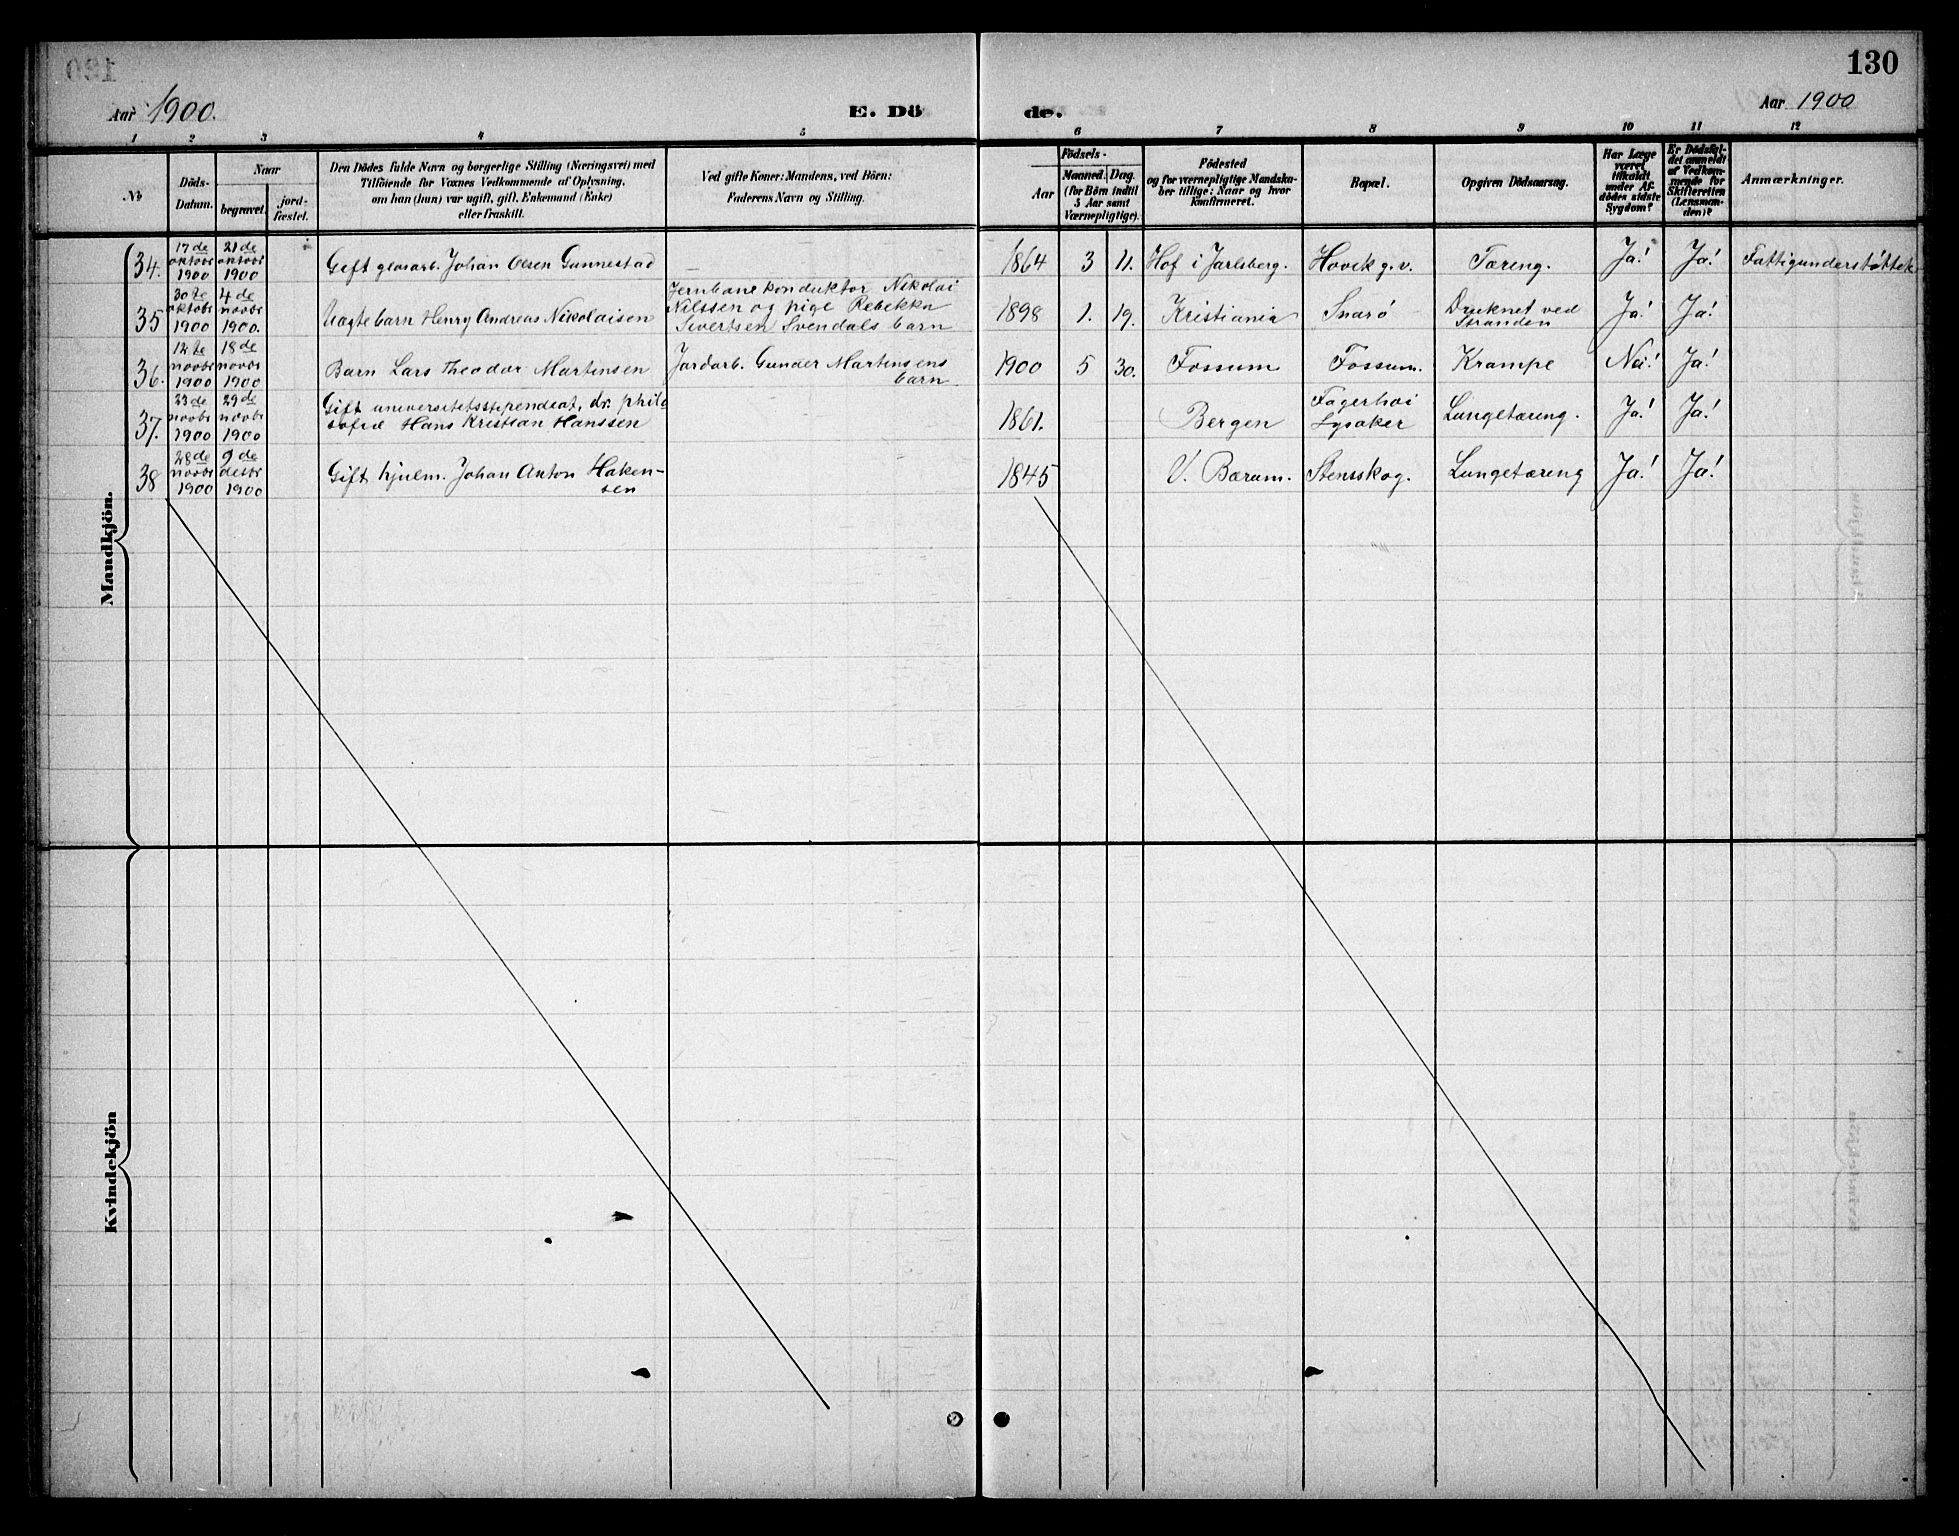 130
Aar 1900.
E. Dö
de.
Aar 1900
1 2 3 4 5 6 7 8 9 10 11 12
No
Döds-
Datum.
Naar
begravet.
jord-
fæstet.
Den Dödes fulde Navn og borgerlige Stilling (Næringsvei) med
Tilföiende for Voxnes Vedkommende af Oplysning,
om han (hun) var ugift, gift, Enkemand (Enke)
eller fraskilt.
Ved gifte Koner: Mandens, ved Börn:
Faderens Navn og Stilling.
Födsels-
Aar
Maaned. Dag.
(for Börn indtil
5 Aar samt
Værnepligtige).
Födested
og for værnepligtige Mandska-
ber tillige: Naar og hvor
konfirmeret.
Bopæl.
Opgiven Dödsaarsag.
Har Læge
været
tilkaldt
under Af-
dödes sidste
Sygdom?
Er Dödsfal-
det anmeldt
af Vedkom-
mende for
Skifteretten
(Lensman-
den)?
Anmærkninger.
Mandkjön.
34. 17de oktobr 1900 21de oktobr 1900 Gift glasarb. Johan Olsen Gunnestad — 1864 3 11. Hof i Jarlsberg. Høvik g.v. Tæring. Ja! Ja! Fattigunderstøttet
35 30te oktobr 1900 4de novbr 1900. Uægte barn Henry Andreas Nikolaisen Jernbane konduktør Nikolai
Nilssen og pige Rebekka
Sivertsen Svendals barn 1898 1. 19. Kristiania Snarø Druknet ved
Stranden Ja! Ja!
36. 12te novbr 1900 18de novbr 1900 Barn Lars Theodor Martinsen Jordarb. Gunder Martinsens
barn 1900 5 30. Fossum Fossum. Krampe Nei! Ja!
37. 23de novbr 1900 29de novbr 1900 Gift universitetsstipendeat, dr. philo
sofiæ Hans Kristian Hanssen 1861. Bergen Fagerhøi
Lysaker Lungetæring. Ja! Ja!
38 28de novbr 1900 9de decbr 1900 Gift hjulm. Johan Anton Haken-
sen 1845 V. Bærum. Stensskog. Lungetæring Ja! Ja!
Kvindekjön